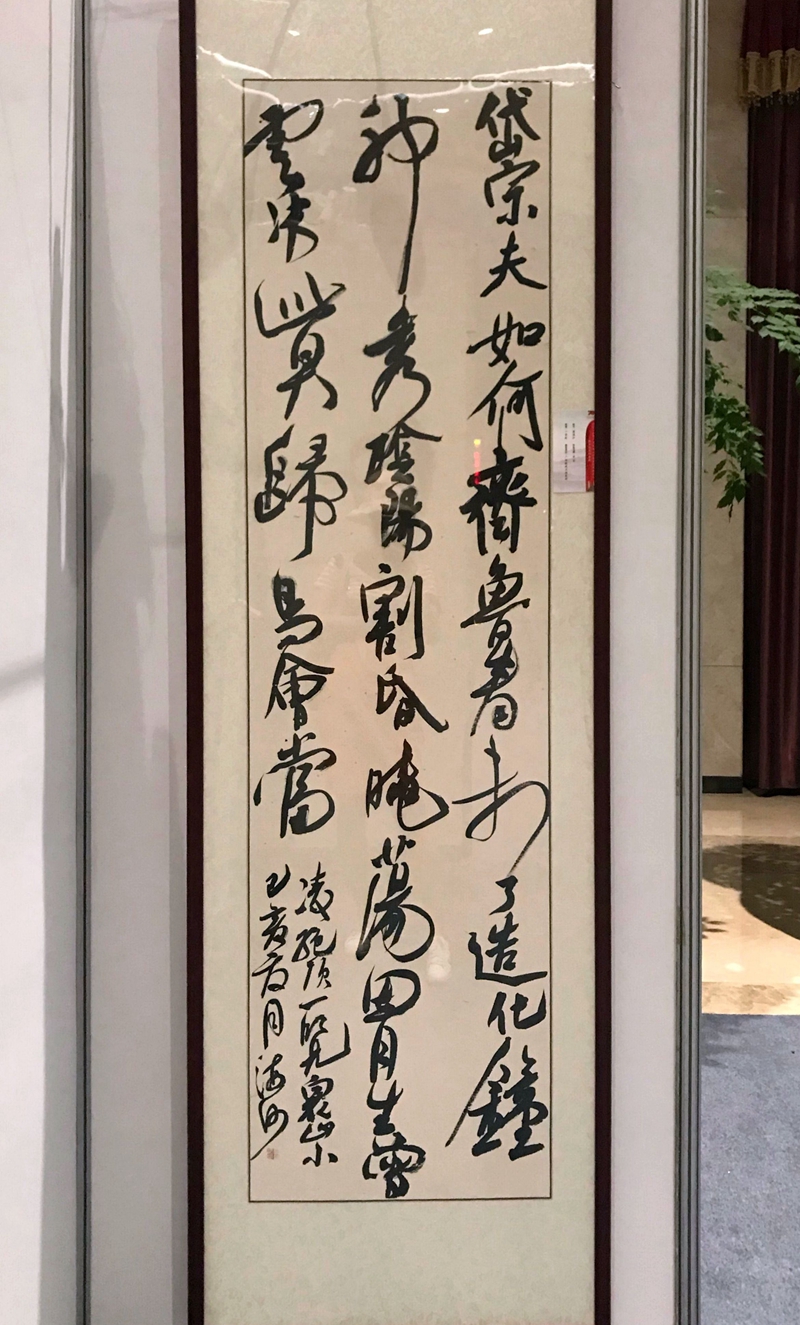 岱宗夫如何齊魯青未了造化鐘
神秀陰陽割昏曉蕩胸生曾
雲決眥入歸鳥會當
凌絕頂一覽眾山小
己亥夏月海